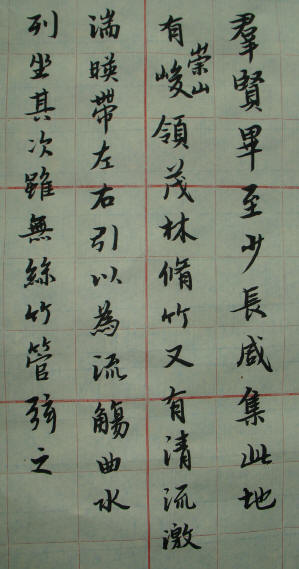 羣賢畢至少長咸集此地
有崇山峻領茂林脩竹又有清流激
湍暎帶左右引以為流觴曲水
列坐其次雖無絲竹管弦之